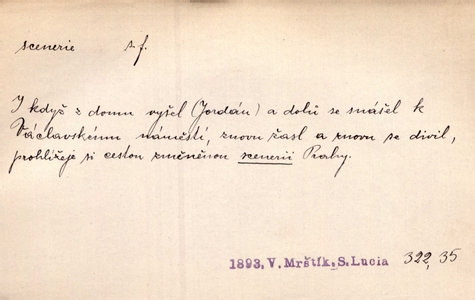 scenerie s. f.
I když z domu vyšel (Jordán) a dolů se snášel k
Václavskému náměstí, znovu žasl a znovu se divil,
prohlížeje si cestou změněnou scenerii Prahy.
1893. V. Mrštík. S. Lucia 322, 35